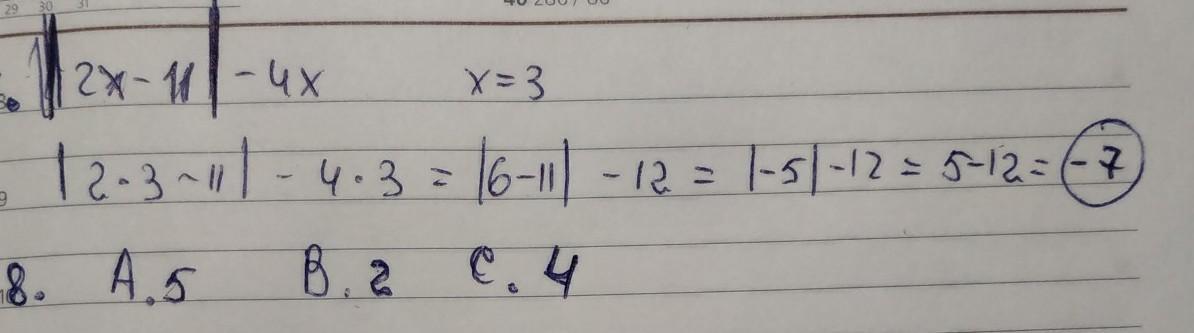 29 30 31
|2x-11| -4x x=3
|2·3-11| - 4·3 = |6-11| -12 = |-5|-12 = 5-12= -7
8. A.5 B.2 C.4